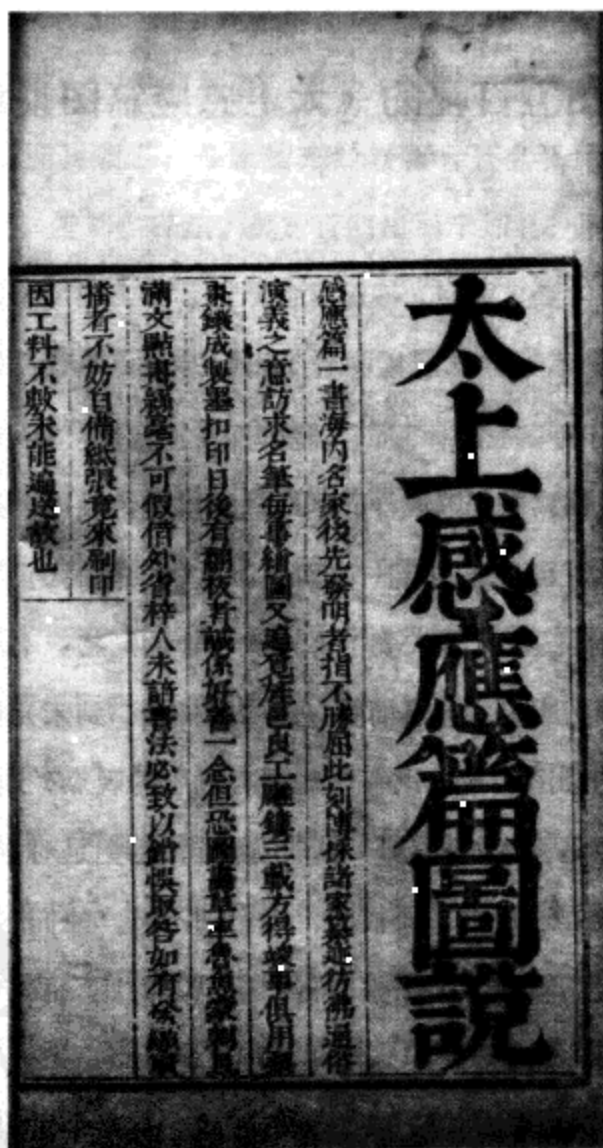 太上感應篇圖說
感應篇一書海內名家後先發明者指不勝屈此刻博採諸家纂述彷彿通俗
演義之意訪求名筆每事繪圖又遍覓旌邑良工雕鏤三載方得竣事俱用
鏤成製墨扣印日後有翻板者誠係好善一念但恐圖畫草率魯魚
滿文點畫絲毫不可假借外省梓人未諳書法必致以錯悞取咎如有
者不妨自備紙張竟來刷印
因工料不敷未能遍送故也